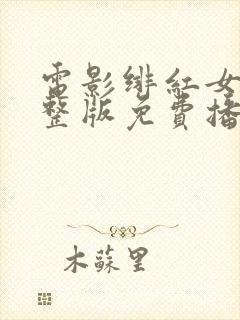 電影绯紅女
整版免費播
木蘇里